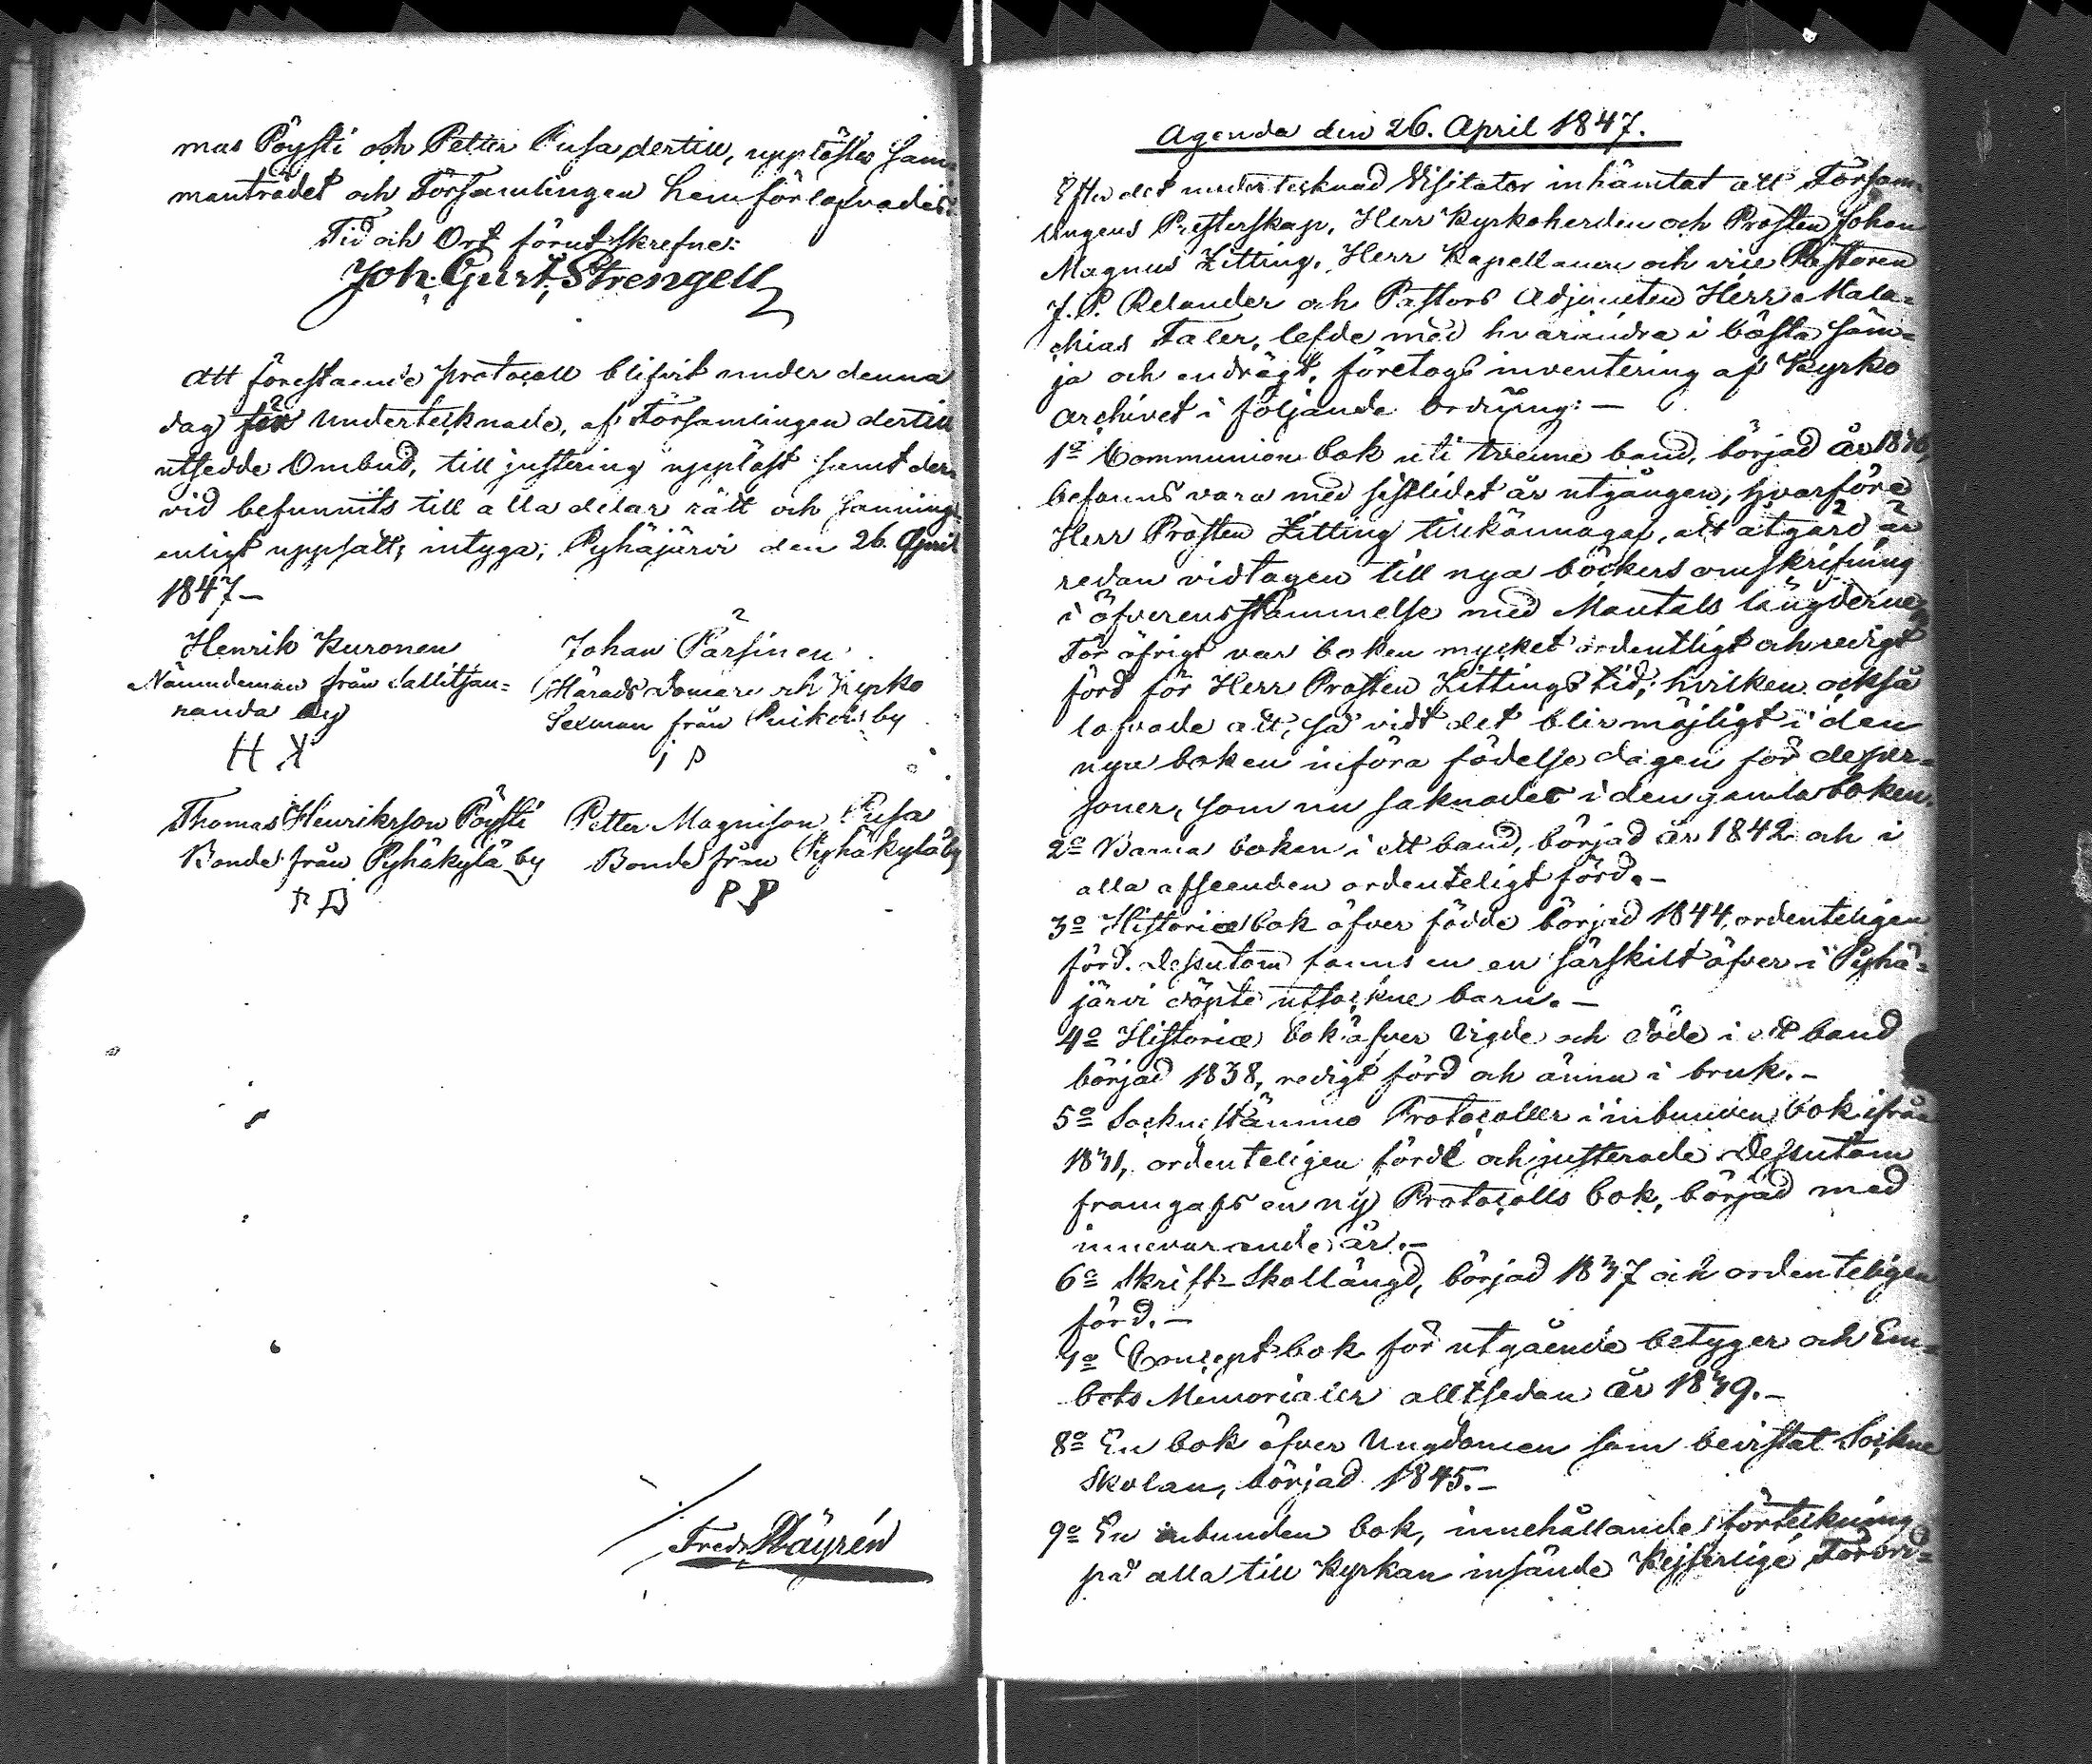 mus Pöysti och Petter Pusa dertill, upplöstes Sam-
manträdet och Församlingen hemförlofvades.
Tid och Ort förutskrefne:
Joh. Gust. Strengell
Att förestående protocoll blifvit under denna
dag för undertecknade, af Församlingen dertill
utsedde Ombud, till justering uppläst samt der-
vid befunnits till alla delar rätt och sannings
enligt uppsatt; intyga; Pyhäjärvi den 26. April
1847-
Henrik Kuronen
Nämndeman från Sallitsan=
randa by
H K
Johan Pärsinen
Härads Domare och Kyrko
Sexman från by
I P
Thomas Henriksson Pöysti
Bonde från Pyhäkylä by
Petter Magnison Pusa
Bonde från Pyhäkylä by
P P
Fredr. Häyrén
Agenda den 26. April 1847.
Efter det undertecknad Visitator inhämtat att Försam-
lingens Presterskap, Herr Kyrkoherden och Prosten Johan
Magnus Zitting, Herr Kapellanen och vice Pastoren
J. P. Relander och Pastors Adjuncten Herr Mala=
chias Taler, lefde med hvarandra i bästa säm=
ja och endrägt, företogs inventering af Kyrko
archivet i följande ordning:-
1o Communion bok uti trenne band, började år 1836,
befanns vara med sistlidet år utgången, hvarföre
Herr Prosten Zitting tillkännagaf, att åtgärd är
redan vidtagen till nya böckers omskrifning
i öfverensstämmelse med Mantals längderne,
För öfrigt var boken mycket ordentligt och redigt
förd för Herr Prosten Zittings tid; hvilken också
lofvade att, så vidt det blir möjligt i den
nya boken införa födelse dagen för de per=
soner, som nu saknades i den gamla boken.
2o Barna boken i ett band, börjad år 1842 och i
alla afseenden ordenteligt förd.-
3o Historiæ bok öfver födde börjad 1844, ordenteligen
förd. Dessutom fanns en särskilt öfver i Pyhä=
järvi döpte utsockne barn.-
4o Historiæ bok öfver Vigde och Döde i ett band
börjad 1838, redigt förd och ännu i bruk.-
5o Sockne stämmo Protocoller i inbunden bok ifrån
1831, ordenteligen förde och justerade. Dessutom
framgafs en ny Protocolls bok, börjad med
innevarande år.-
6o Skrift-Skollängd, börjad 1837 och ordenteligen
förd.-
7o Concept bok för utgående betyger och Em=
bets Memorialer alltsedan år 1839.-
8o En bok öfver Ungdomen som bevistat Sockne
Skolan, börjad 1845.-
9o En inbunden bok, innehållande förteckning
på alla till Kyrkan insände Kejserlige Förord=